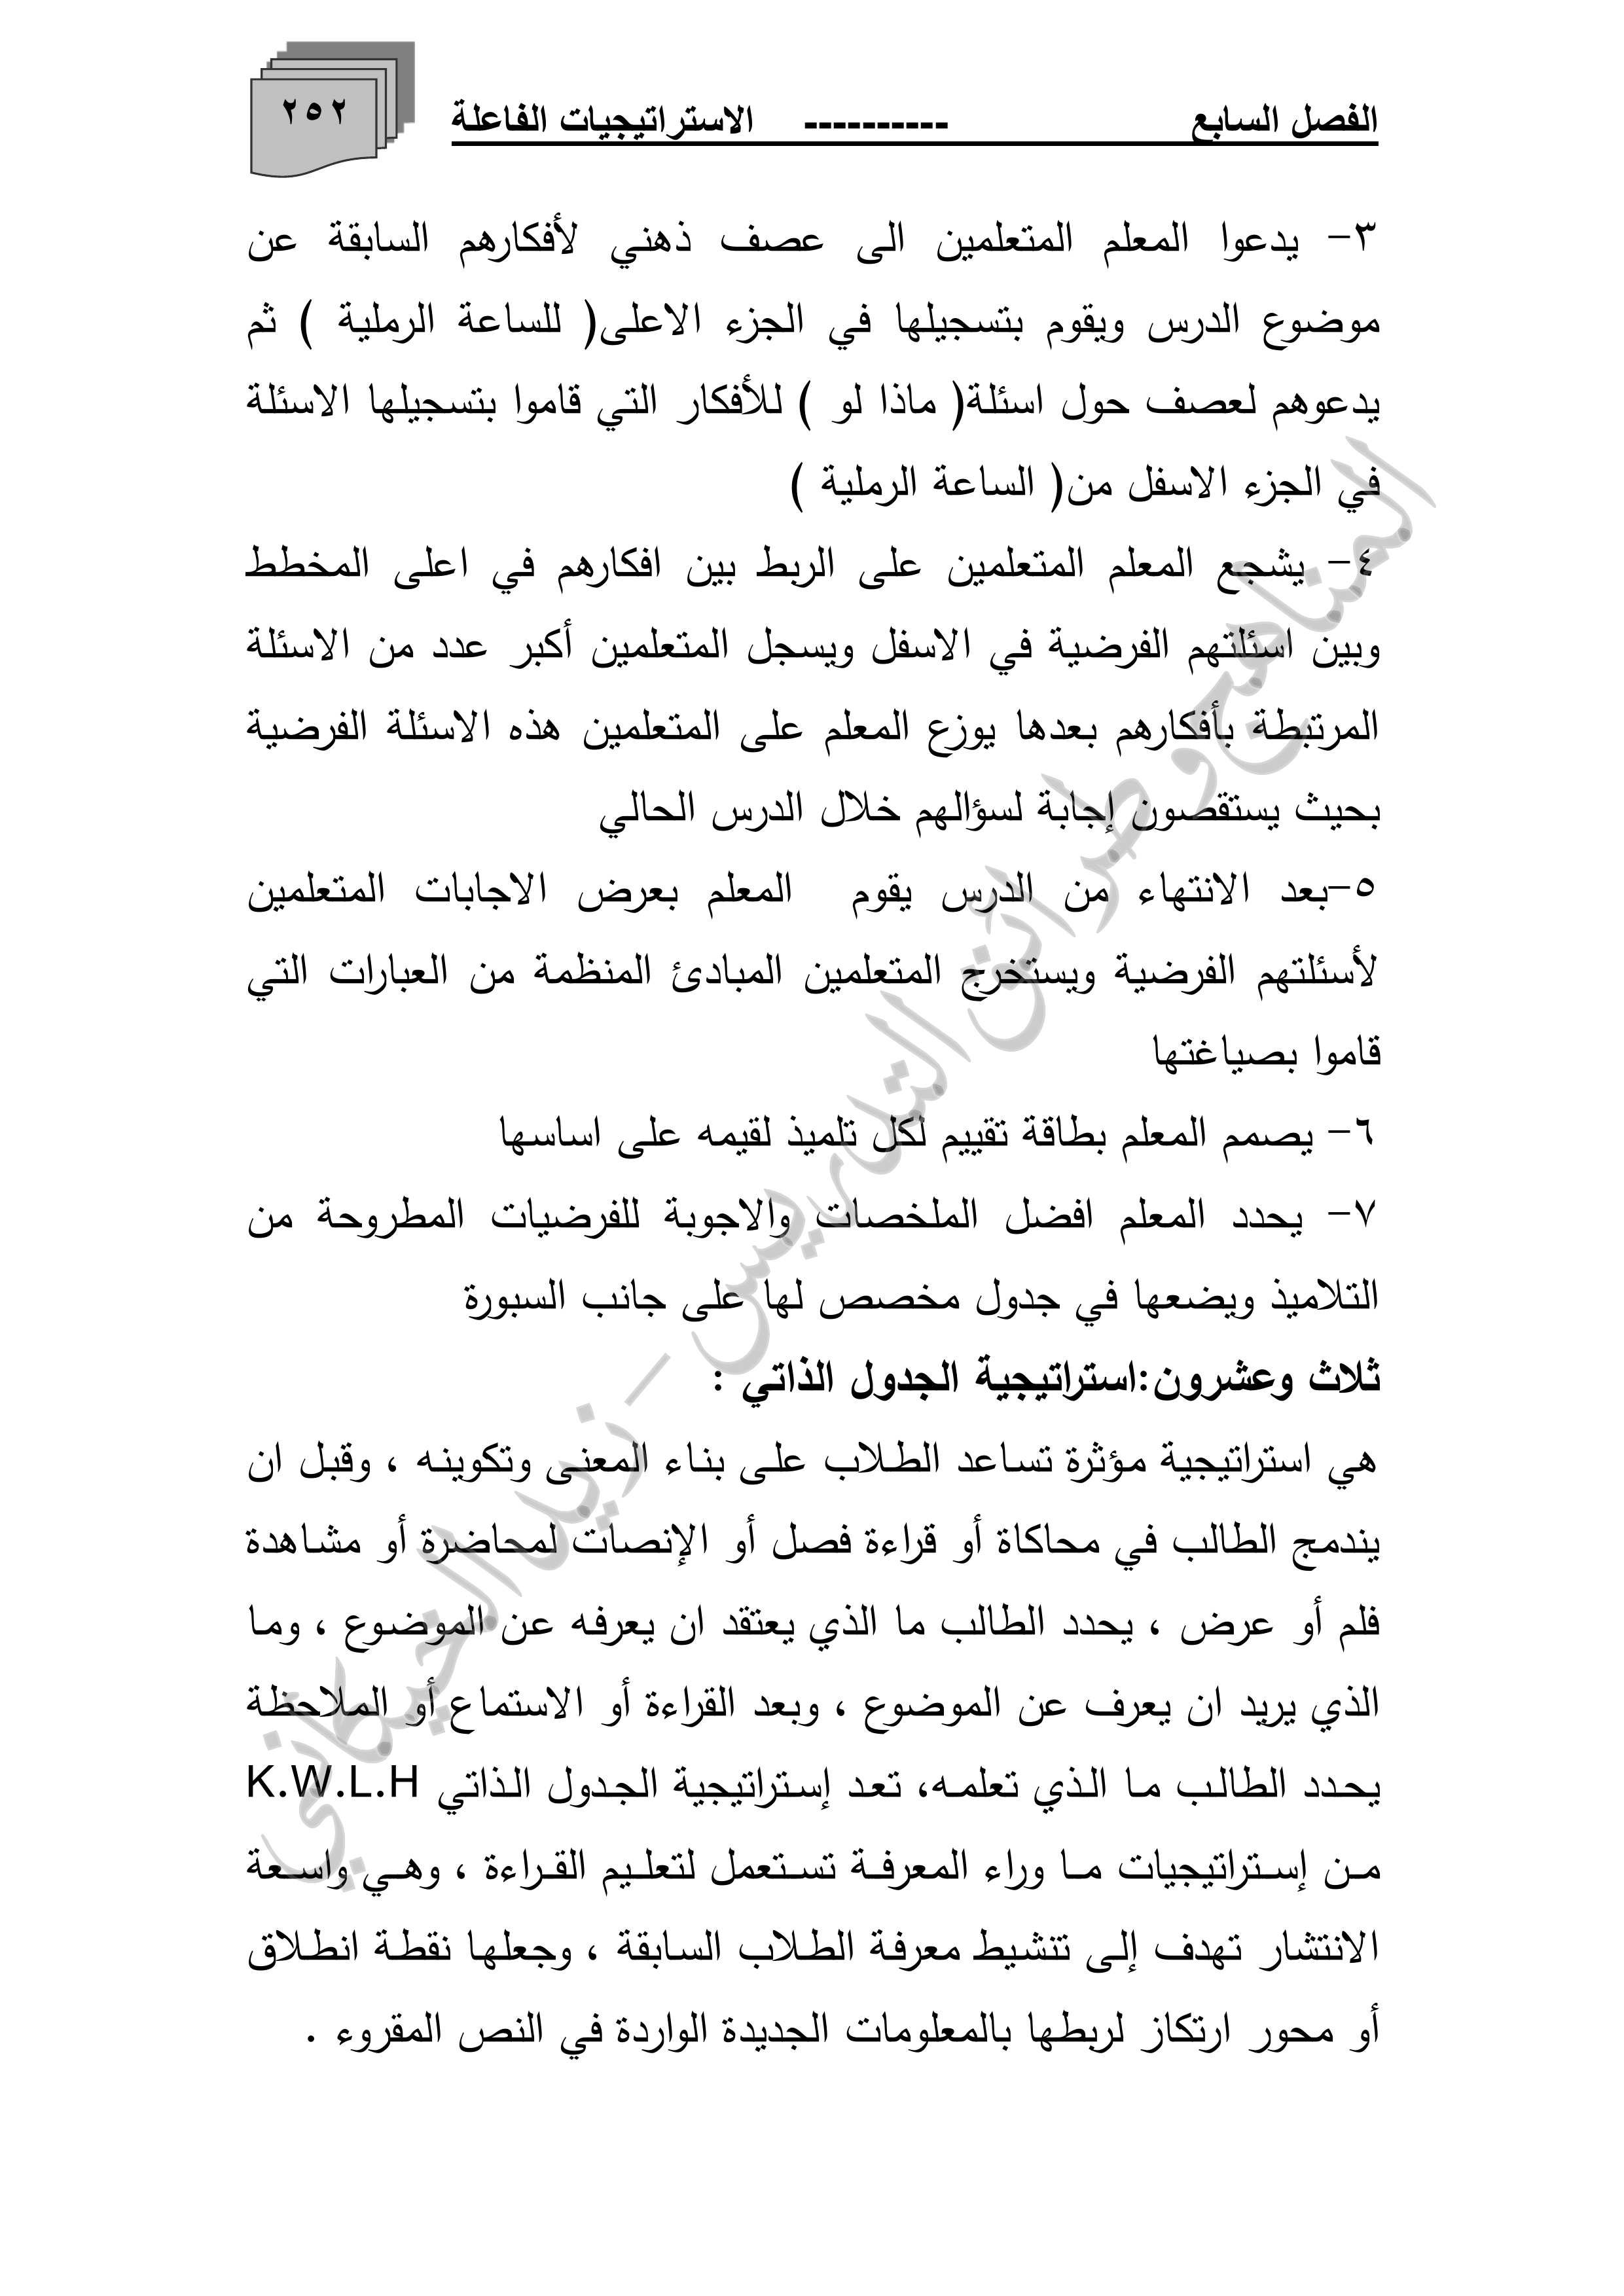 الفصل السابع ---------- الاستراتيجيات الفاعلة
٢٥٢
٣- يدعوا المعلم المتعلمين الى عصف ذهني لأفكارهم السابقة عن
موضوع الدرس ويقوم بتسجيلها في الجزء الاعلى( للساعة الرملية ) ثم
يدعوهم لعصف حول اسئلة( ماذا لو ) للأفكار التي قاموا بتسجيلها الاسئلة
في الجزء الاسفل من( الساعة الرملية )
٤- يشجع المعلم المتعلمين على الربط بين افكارهم في اعلى المخطط
وبين اسئلتهم الفرضية في الاسفل ويسجل المتعلمين أكبر عدد من الاسئلة
المرتبطة بأفكارهم بعدها يوزع المعلم على المتعلمين هذه الاسئلة الفرضية
بحيث يستقصون إجابة لسؤالهم خلال الدرس الحالي
٥-بعد الانتهاء من الدرس يقوم المعلم بعرض الاجابات المتعلمين
لأسئلتهم الفرضية ويستخرج المتعلمين المبادئ المنظمة من العبارات التي
قاموا بصياغتها
٦- يصمم المعلم بطاقة تقييم لكل تلميذ لقيمه على اساسها
٧- يحدد المعلم افضل الملخصات والاجوبة للفرضيات المطروحة من
التلاميذ ويضعها في جدول مخصص لها على جانب السبورة
ثلاث وعشرون:استراتيجية الجدول الذاتي :
هي استراتيجية مؤثرة تساعد الطلاب على بناء المعنى وتكوينه ، وقبل ان
يندمج الطالب في محاكاة أو قراءة فصل أو الإنصات لمحاضرة أو مشاهدة
فلم أو عرض ، يحدد الطالب ما الذي يعتقد ان يعرفه عن الموضوع ، وما
الذي يريد ان يعرف عن الموضوع ، وبعد القراءة أو الاستماع أو الملاحظة
يحدد الطالب ما الذي تعلمه، تعد إستراتيجية الجدول الذاتي K.W.L.H
من إستراتيجيات ما وراء المعرفة تستعمل لتعليم القراءة ، وهي واسعة
الانتشار تهدف إلى تنشيط معرفة الطلاب السابقة ، وجعلها نقطة انطلاق
أو محور ارتكاز لربطها بالمعلومات الجديدة الواردة في النص المقروء .
المناهج وطرائق التدريس - زيد الخيكاني